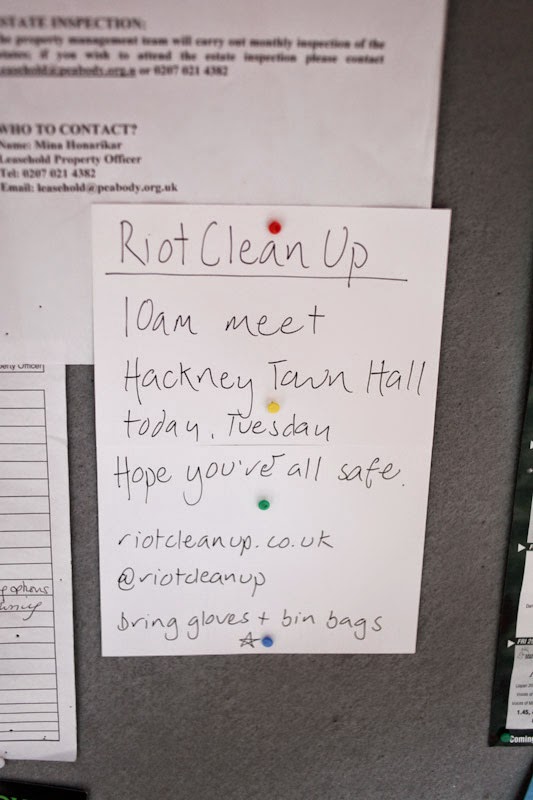 STATE INSPECTION:
he property management team will carry out monthly inspection of the
states; if you wish to attend the estate inspection please contact
leasehold@peabody.org.u or 0207 021 4382
WHO TO CONTACT?
Name: Mina Honarikar
Leasehold Property Officer
Tel: 0207 021 4382
Email: leasehold@peabody.org.uk
Riot Clean Up
10am meet
Hackney Town Hall
today, Tuesday
Hope you've all safe.
riotcleanup.co.uk
@riotcleanup
bring gloves + bin bags
erty Officer
options
FRI 2
1.45,
Coming